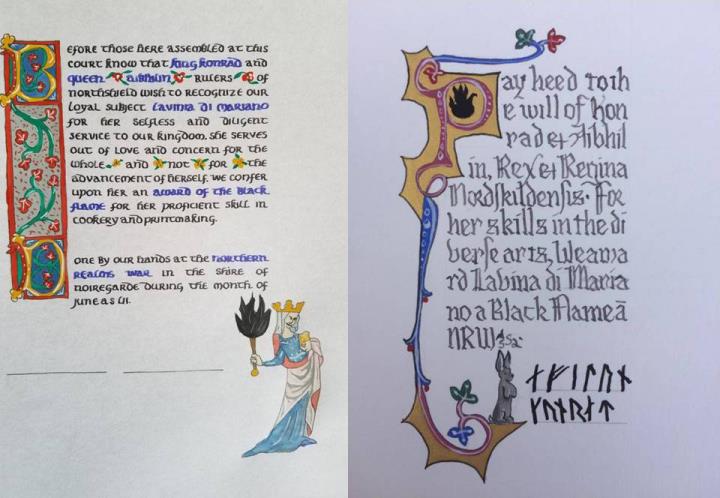 Before those here assembled at this
court know that king konrad and
queen Aibhilin rulers of
northshield wish to recognize our
loyal subject Lavina di Mariano
for her selfless and diligent
service to our kingdom. She serves
out of love and concern for the
whole and not for the
advancement of herself. We confer
upon her an award of the black
flame for her proficient skill in
cookery and printmaking.
Done by our hands at the northern
realms war in the shire of
noiregarde during the month of
june as LII.
Pay heed to th
e will of Kon
rad et Aibhil
in, Rex et Regina
Nordskildensis. For
her skills in the di
verse arts, We awa
rd Lavina di Maria
no a Black Flame ā
NRW